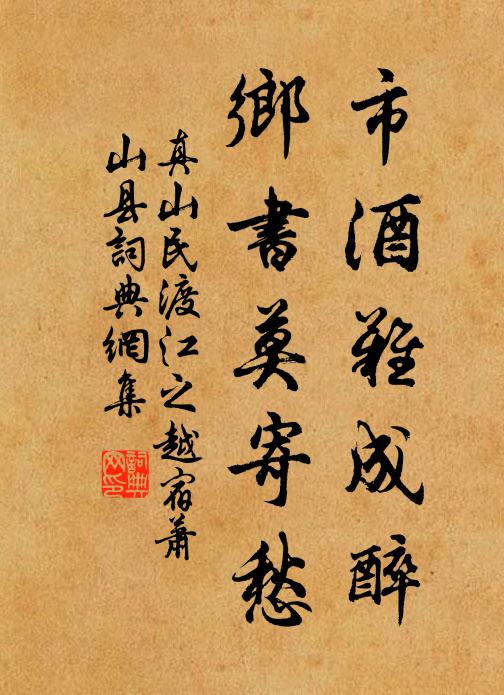 市酒难成醉
鄉書莫寄愁
真山民渡江之越宿蕭
山县詞典網集
詞典网印